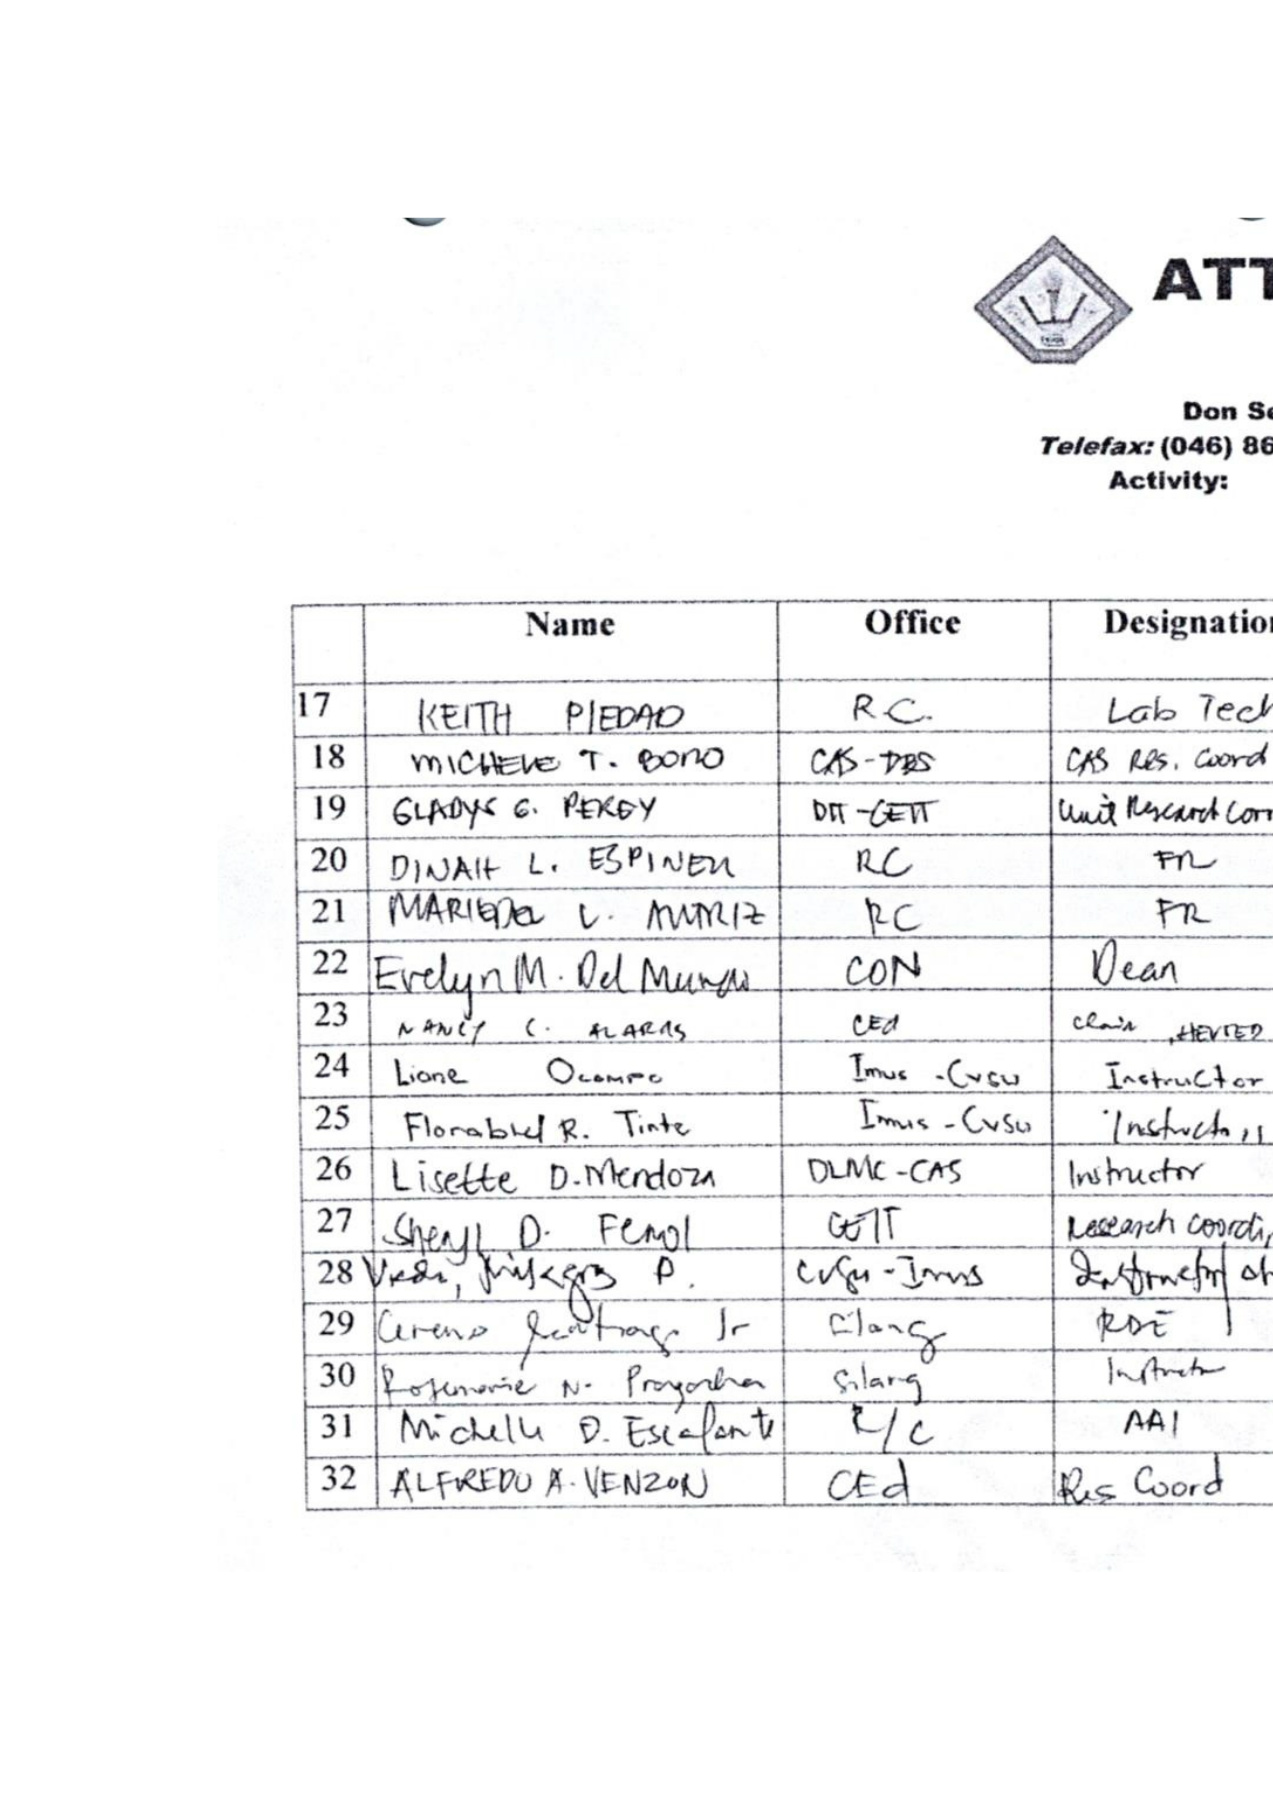 ATT
Don Se
Telefax: (046) 86
Activity:
Name Office Designation
17 KEITH PIEDAD R.C. Lab Tech
18 MICHELE T. BONO CAS-DBS CAS Res. Coord
19 GLADYS G. PEREY DIT-CEIT Unit Research Corr
20 DINAH L. ESPINELI RC FR
21 L. RC FR
22 Evelyn M. Del Mundo CON Dean
23 NANCY C. ALARAS CEd Chair, HEVTED
24 Liane Ocampo Imus - CvSU Instructor
25 Florabel R. Tinte Imus - CvSU Instructor
26 Lisette D. Mendoza DLMC-CAS Instructor
27 Sheryl D. Fenol CEIT Research coordi
28 Milagros P. CvSU-Imus Instructor
29 Cereno Santiago Jr Silang RDE
30 Rosemarie N. Silang Instructor
31 Michelle D. Escalante R/C AA1
32 ALFREDO A. VENZON CEd Res Coord